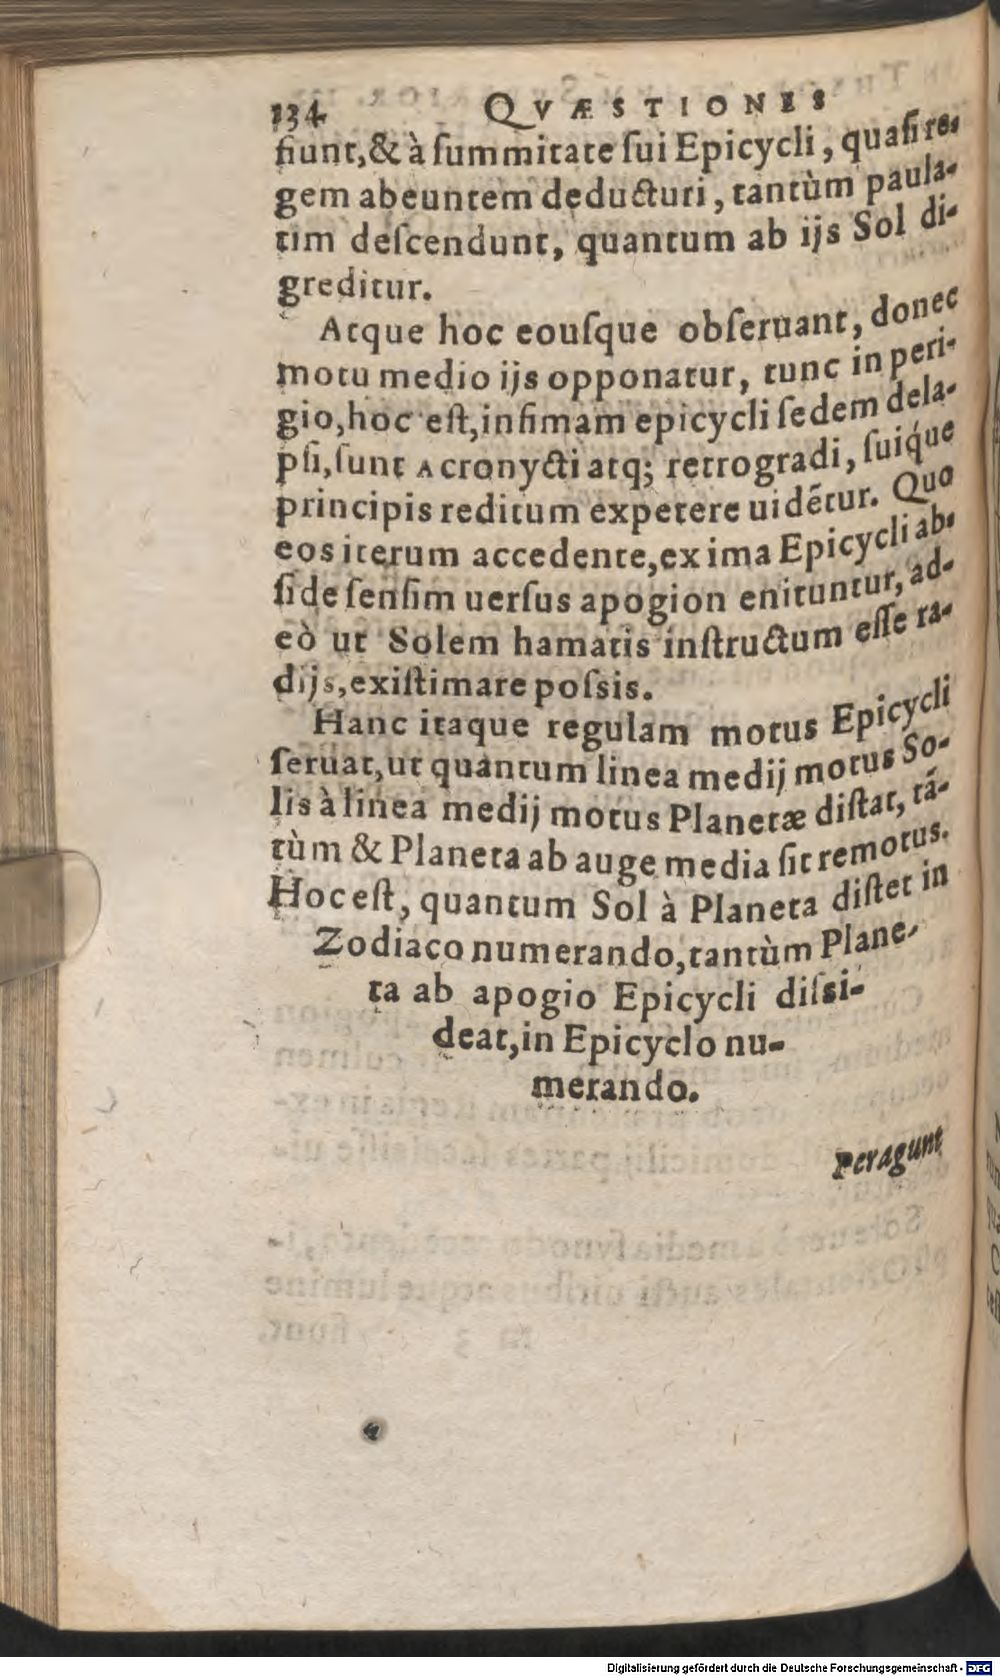 134 QVÆSTIONES
fiunt,& à ſummitate ſui Epicycli, quaſi re-
gem abeuntem deducturi, tantùm paula-
tim deſcendunt, quantum ab ijs Sol di-
greditur.
Atque hoc eouſque obſeruant, donec
motu medio ijs opponatur, tunc in peri-
gio,hoc eſt,infimam epicycli ſedem dela-
pſi,ſunt Acronycti atq; retrogradi, ſuiq́ue
principis reditum expetere uidẽtur. Quo
eos iterum accedente,ex ima Epicycli ab-
ſide ſenſim uerſus apogion enituntur, ad-
eò ut Solem hamatis inſtructum eſſe ra-
dijs,exiſtimare poſsis.
Hanc itaque regulam motus Epicycli
ſeruat,ut quantum linea medij motus So-
lis à linea medij motus Planetæ diſtat, tã-
tùm & Planeta ab auge media ſit remotus.
Hoc eſt, quantum Sol à Planeta diſtet in
Zodiaco numerando,tantùm Plane-
ta ab apogio Epicycli diſsi-
deat,in Epicyclo nu-
merando.
Peragunt
Digitalisierung gefördert durch die Deutsche Forschungsgemeinschaft - DFG